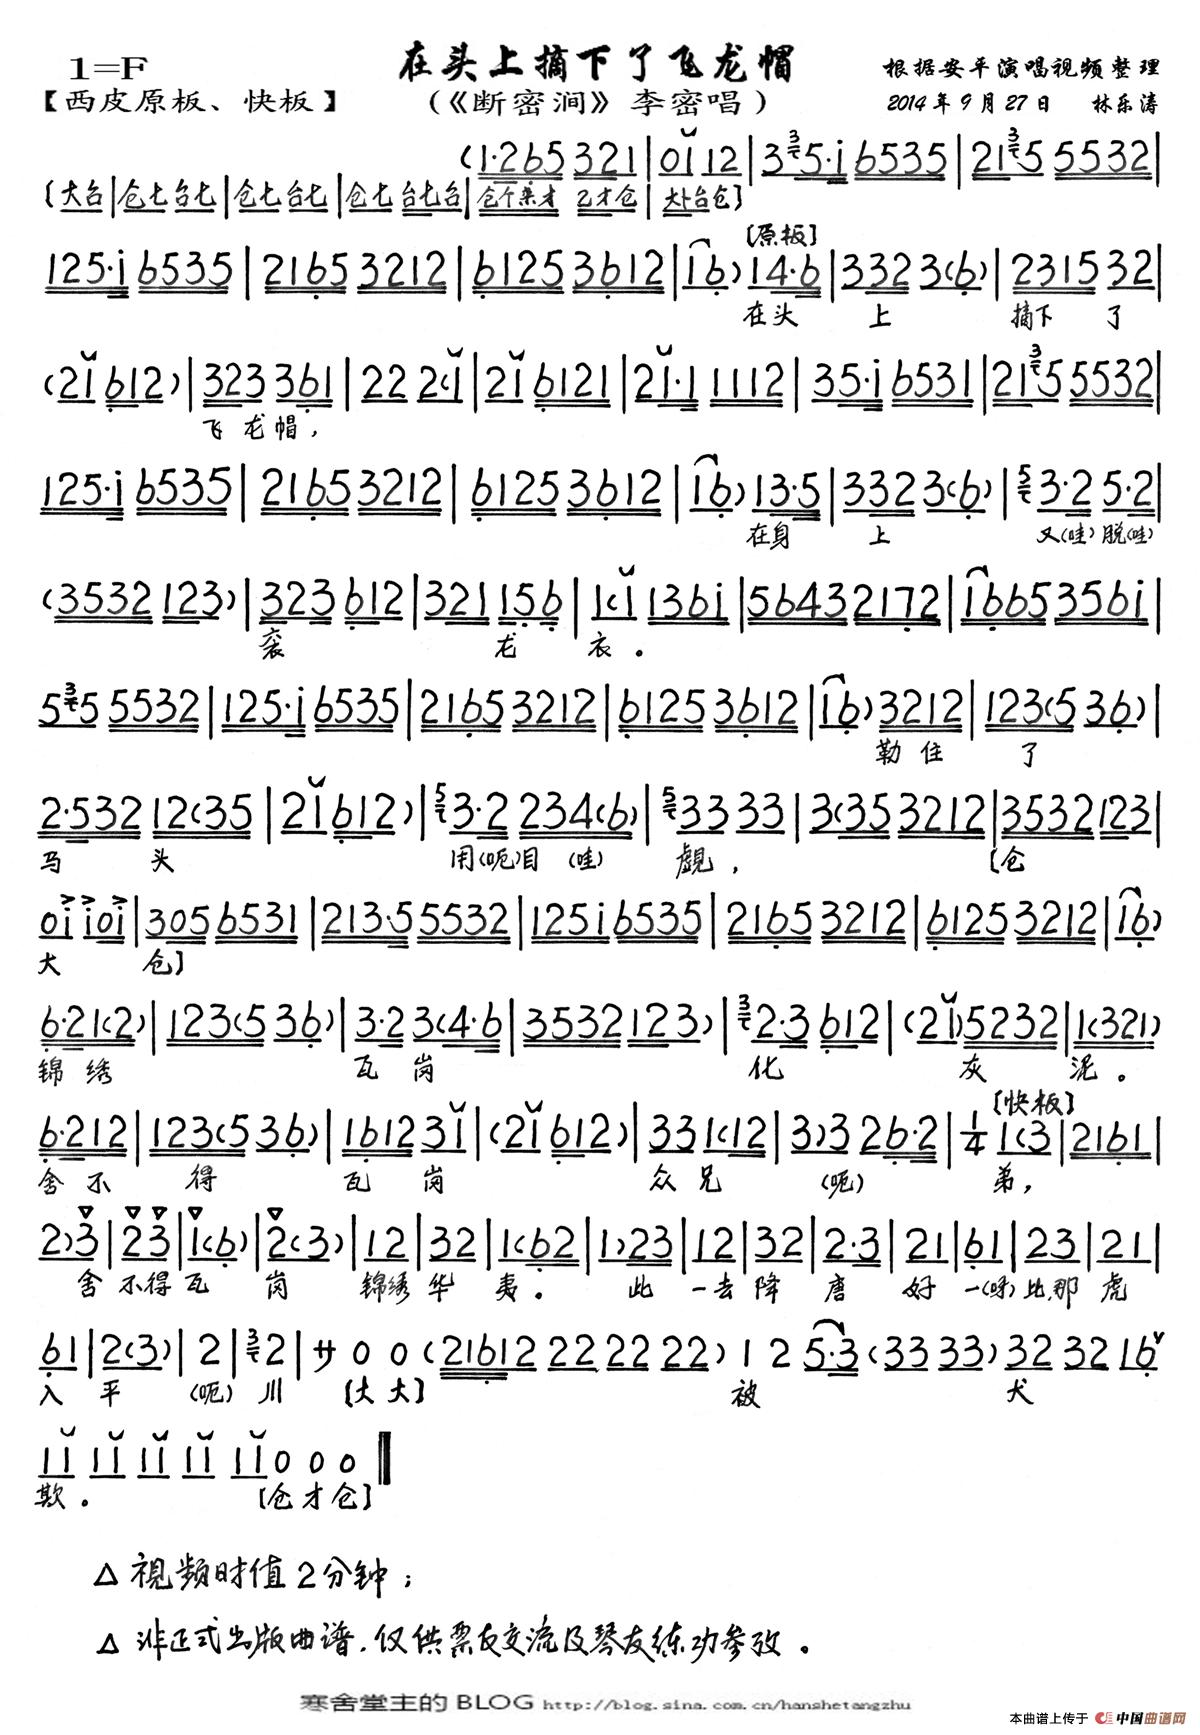 在头上摘下了飞龙帽
1=F
根据安平演唱视频整理
【西皮原板、快板】
(《断密涧》李密唱)
2014年9月27日 林乐涛
(1·265 321|01 12|3 35·i 6535|21 35 5532|
[大台|仓七台七|仓七台七|仓七台七台|仓个来才 乙才仓 大卜台仓]
[原板]
125·i 6535|2165 3212|61253612|16) 14·6|332 3(6)|2315 32|
在头 上 摘下 了
(21 612)|323 361|22 2(1|21 6121|21·1 1112|35·i 6531|21 35 5532|
飞龙帽，
125·i 6535|2165 3212|61253612|16) 13·5|332 3(6)|53·2 5·2|
在身 上 又(哇)脱(哇)
(3532 123)|323 612|321 156|1(1 136i|56432172|1665356i|
衮 龙 衣。
5 35 5532|125·i 6535|2165 3212|61253612|16) 3212|123(5 36)|
勒住 了
2·532 12(35|21 612)|53·2 234(6)|533 33|3(35 3212|3532 123|
马 头 用(呃)目(哇) 觑， [仓
0i i0i|305 6531|213·5 5532|125i 6535|2165 3212|61253212|16)
大 仓]
6·21(2)|123(5 36)|3·2 3(4·6|3532 123)|32·3 612|(21)5232|1(321)
锦绣 瓦岗 化 灰 泥。
[快板]
6·212|123(5 36)|1612 31|(21 612)|331(12|3)3 26·2|1/4 1(3|2161|
舍不 得 瓦 岗 众兄 (呃) 弟，
2)3|23|1(6)|2(3)|12|32|1(62|1)23|12|32|2·3|21|61|23|21|
舍不得瓦 岗 锦绣华 夷。 此 一去降 唐 好一(呀)比,那虎
61|2(3)|2|32|サ 0 0 (21612 22 22 22) 1 2 5·3 (33 33) 32 32 16
入 平 (呃) 川 [大大] 被 犬
11 11 11 11 11 0 0 0
欺。 [仓才仓]
△ 视频时值2分钟；
△ 非正式出版曲谱，仅供票友交流及琴友练功参考。
寒舍堂主的BLOG http://blog.sina.com.cn/hanshetangzhu
本曲谱上传于 中国曲谱网